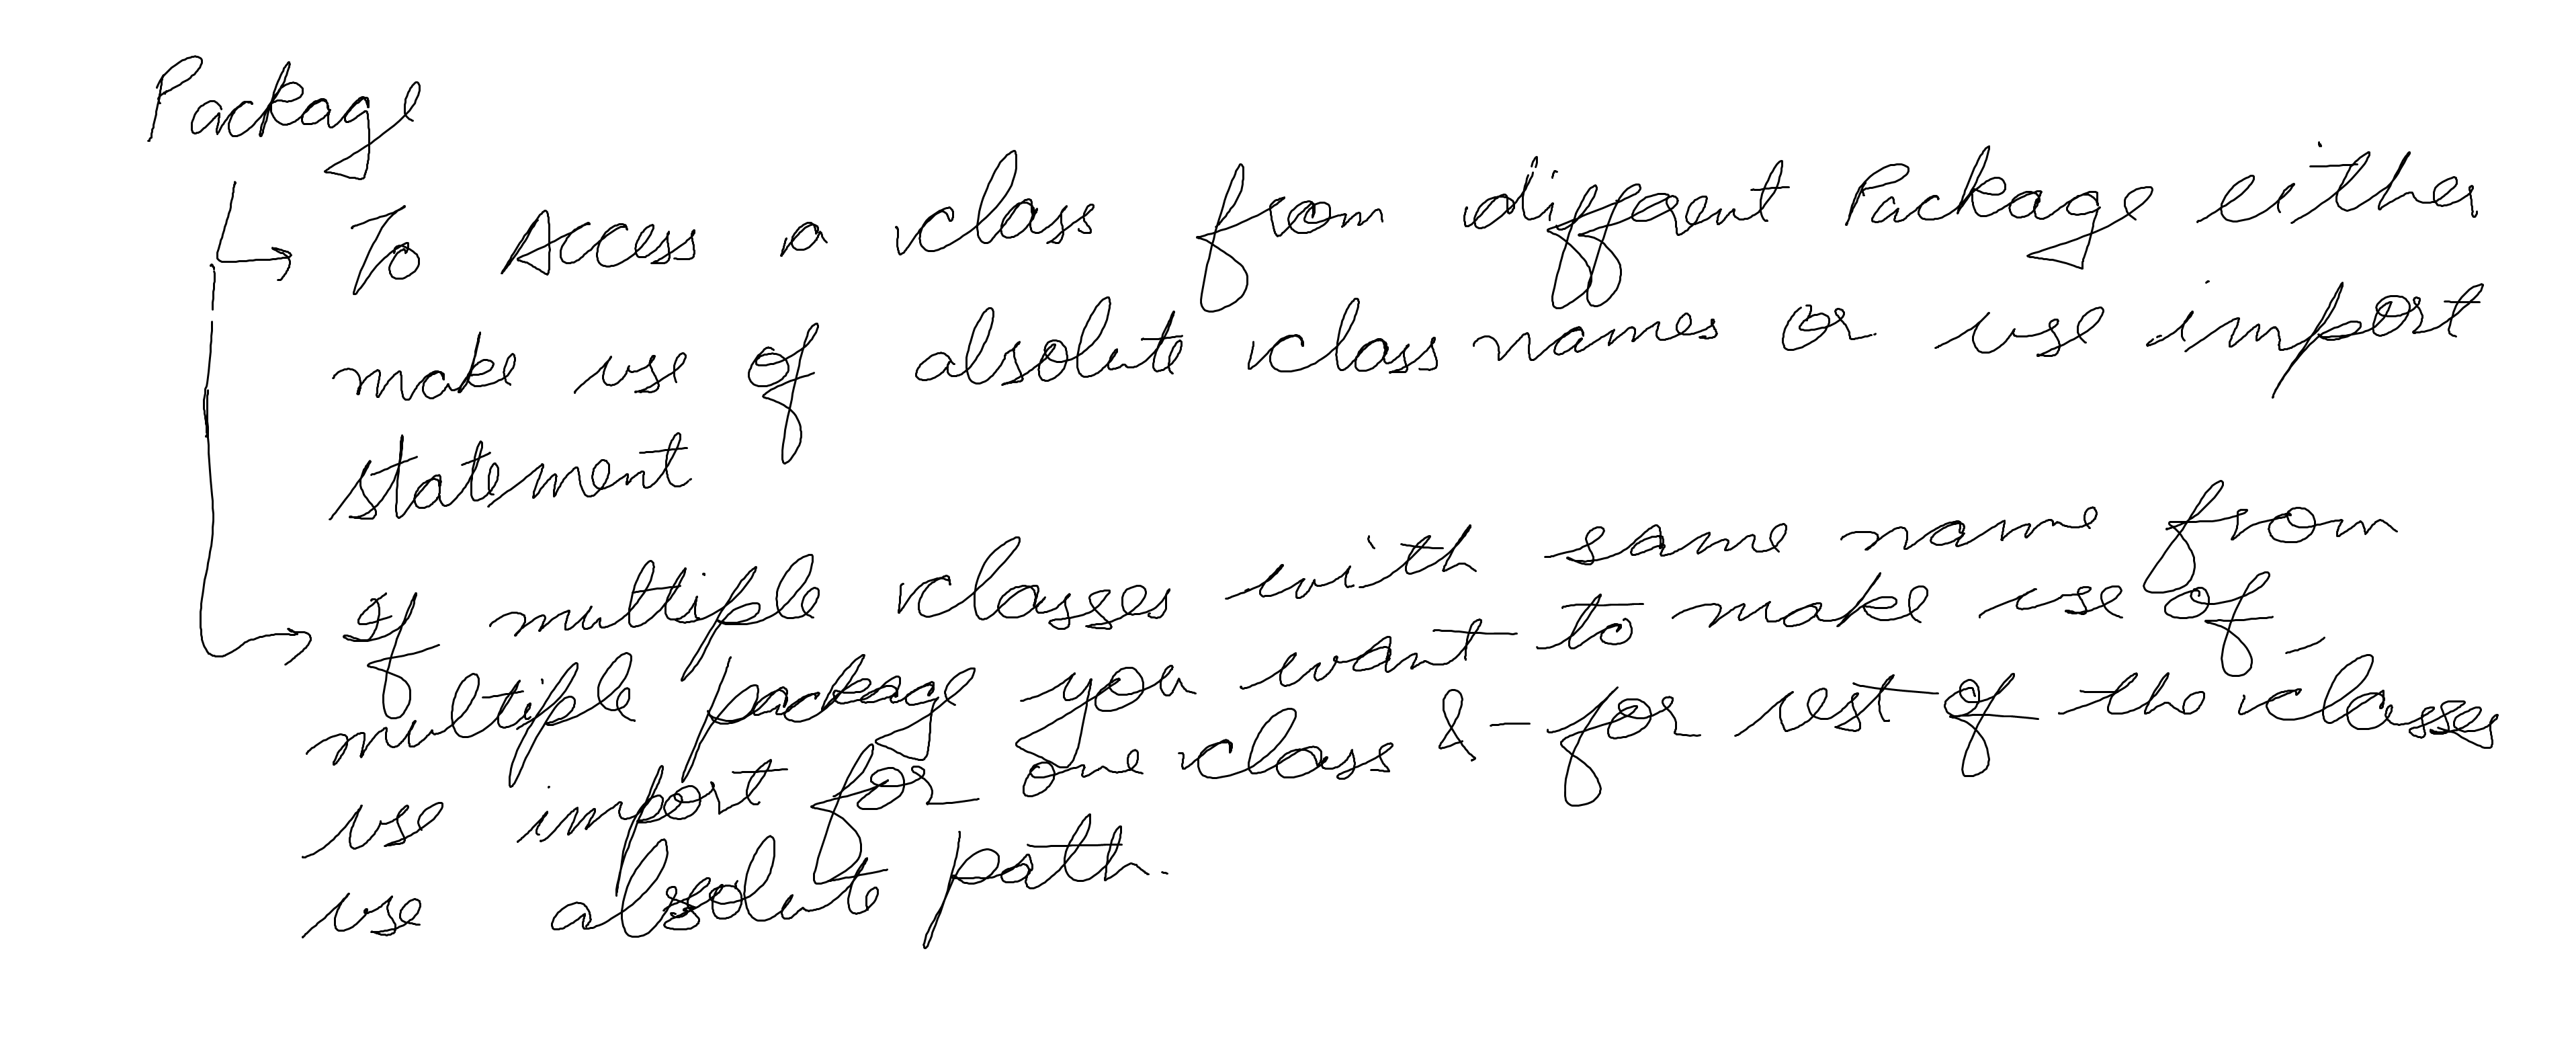 Package
To Access a class from different Package either
make use of absolute class names or use import
statement
If multiple classes with same name from
multiple package you want to make use of,
use import for one class & for rest of the classes
use absolute path.